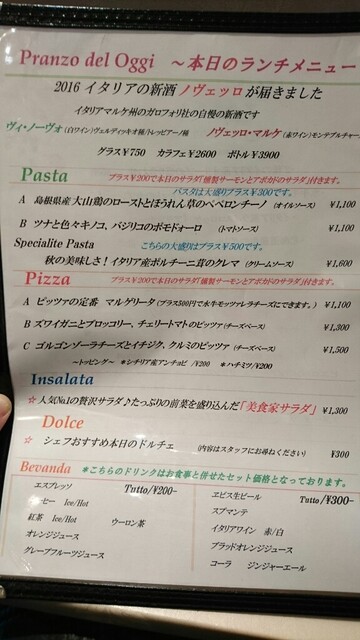 Pranzo del Oggi ～本日のランチメニュー
2016 イタリアの新酒 ノヴェッロ が届きました
イタリアマルケ州のガロフォリ社の自慢の新酒です
ヴィ・ノーヴォ(白ワイン)ヴェルディッキオ種/トレッビアーノ種 ノヴェッロ・マルケ(赤ワイン)モンテプルチャー
グラス¥750 カラフェ¥2600 ボトル¥3900
Pasta プラス¥200で本日のサラダ「燻製サーモンとアボカドのサラダ」付きます。
パスタは大盛りプラス¥300です。
A 島根県産 大山鶏のローストとほうれん草のペペロンチーノ (オイルソース) ¥1,100
B ツナと色々キノコ、バジリコのポモドーロ (トマトソース) ¥1,100
Specialite Pasta こちらの大盛りはプラス¥500です。
秋の美味しさ！イタリア産ポルチーニ茸のクレマ (クリームソース) ¥1,600
Pizza プラス¥200で本日のサラダ「燻製サーモンとアボカドのサラダ」付きます。
A ピッツァの定番 マルゲリータ (プラス500円で水牛モッツァレラチーズにできます。) ¥1,100
B ズワイガニとブロッコリー、チェリートマトのピッツァ (チーズベース) ¥1,300
C ゴルゴンゾーラチーズとイチジク、クルミのピッツァ (チーズベース) ¥1,500
～トッピング～ *シチリア産アンチョビ /¥200 *ハチミツ/¥200
Insalata
☆ 人気No.1の贅沢サラダ♪たっぷりの前菜を盛り込んだ「美食家サラダ」 ¥1,300
Dolce
☆ シェフおすすめ本日のドルチェ (内容はスタッフにお尋ねください) ¥300
Bevanda *こちらのドリンクはお食事と併せたセット価格となっております。
エスプレッソ Tutto/¥200- ヱビス生ビール Tutto/¥300-
ーヒー Ice/Hot スプマンテ
紅茶 Ice/Hot ウーロン茶 イタリアワイン 赤/白
オレンジジュース ブラッドオレンジジュース
グレープフルーツジュース コーラ ジンジャーエール